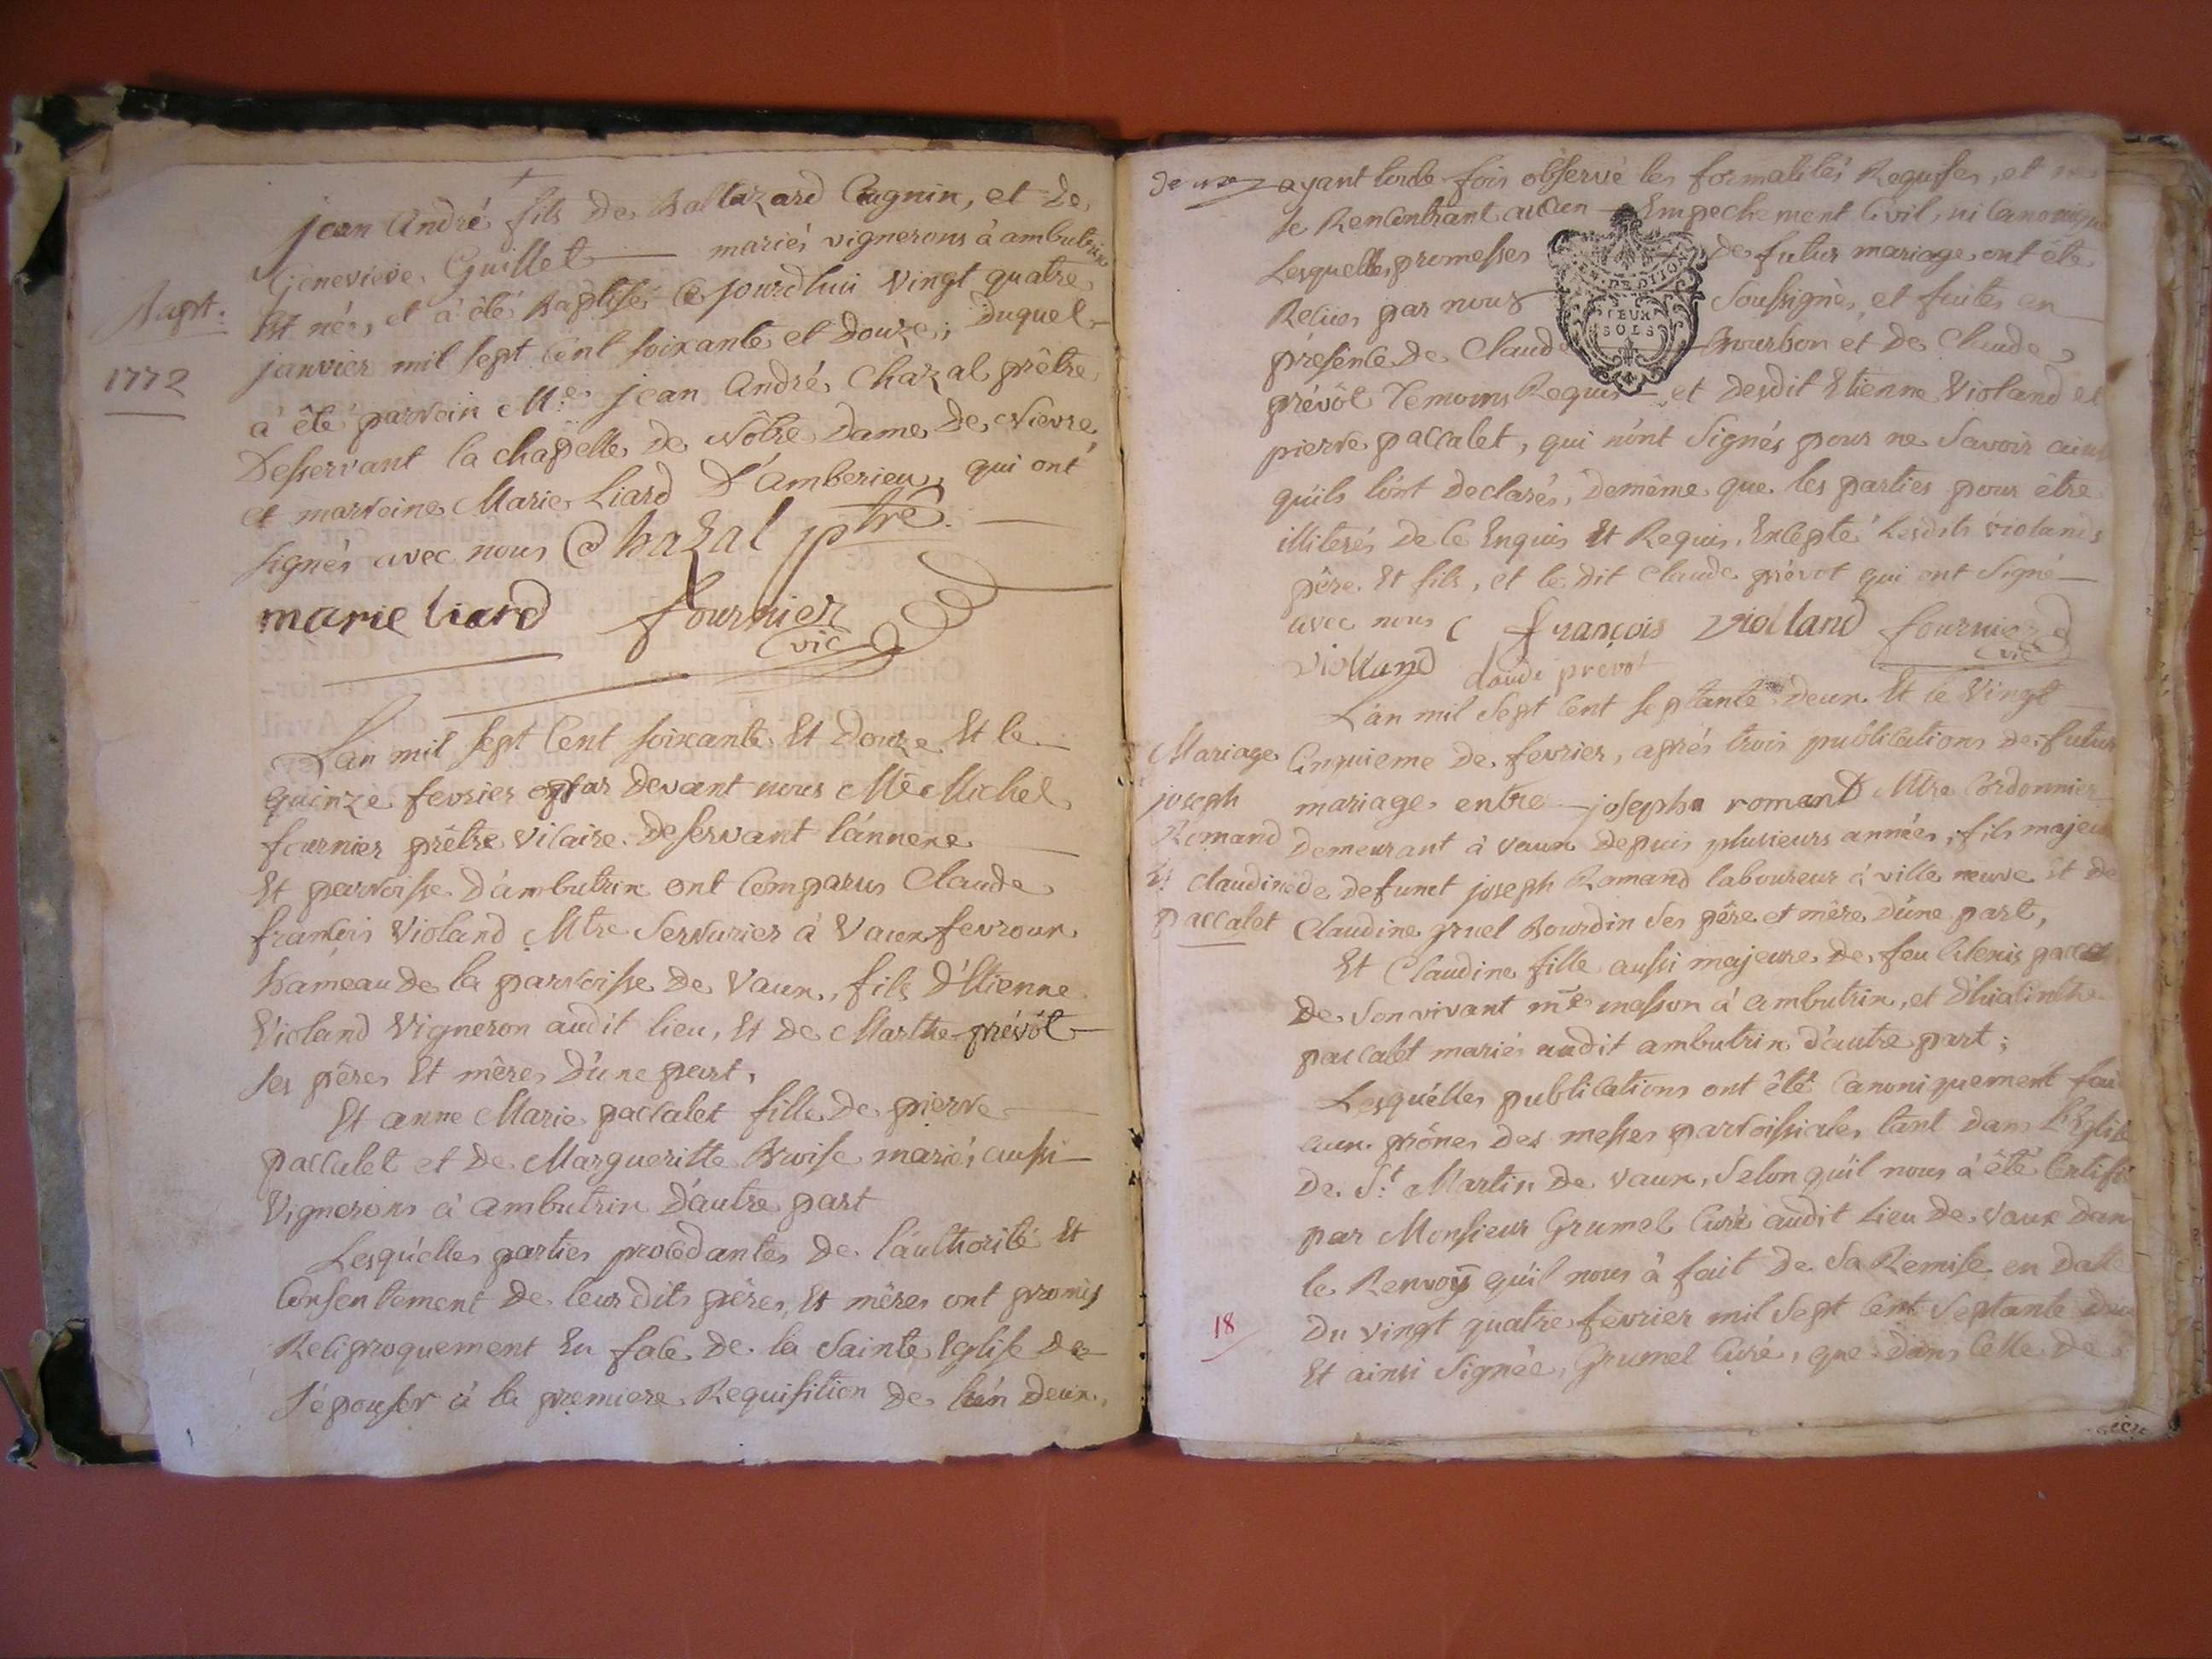 jean André fils de Baltazard Cugnin, et de
Genevieve Guillet mariés vignerons à ambutrix
Bapt. Est né, et à êté Baptisé ce jourdhui vingt quatre
1772 janvier mil sept cent soixante et douze; duquel
à êté parrein Me. jean André Chazal prêtre
Desservant la chapelle de Nôtre Dame de Nievre
et marreine Marie Liard D'amberieu, qui ont
signés avec nous Chazal ptre.
marie liard fournier
vic
L'an mil sept cent soixante Et Douze Et le
quinze fevrier par devant nous Me Michel
fournier prêtre vicaire desservant l'annexe
Et parroisse d'ambutrix ont comparus Claude
francois Violand Mtre Serrurier à Vaux fevroux
hameau de la parroisse de Vaux, fils d'Etienne
Violand Vigneron audit lieu, Et de Marthe prévôt
ses pères Et mères d'une part,
Et anne Marie paccalet fille de pierre
paccalet et de Margueritte Buoise mariés aussi
Vignerons à ambutrix d'autre part
Lesquelles parties procedantes de l'aulthorité Et
Consentement de leurdits pères, Et mères ont promis
Reciproquement En face de la Sainte Eglise de
s'épouser à la premiere Requisition de l'un deux,
de nez ayant toute fois observé les formalités Requises, et
se Rencontrant aucun Empechement Civil, ni Canonique
Lesquelles promesses de futur mariage ont été
DEUX
SOLS
Recües par nous Soussignés, et faites en
présence de Claude Bourbon et de Claude
prévôt Temoins Requis et desdit Etienne Violand et
pierre paccalet, qui n'ont Signés pour ne Savoir ainsi
qu'ils l'ont declarés, demême que les parties pour être
illiterés de ce Enquis Et Requis, Excepté lesdits violands
père Et fils, et le dit Claude prévot qui ont Signé
avec nous C françois Violland fournier
vic
Violland claude prevot
L'an mil Sept Cent Septante deux Et le Vingt
Mariage Cinquieme de fevrier, aprés trois publications de futur
joseph mariage entre joseph romand Mtre Cordonnier
Romand Demeurant à Vaux depuis plusieurs années, fils majeur
Et claudine de defunct joseph Romand laboureur à ville neuve Et de
paccalet Claudine gruel Bourdin ses père et mère d'une part,
Et Claudine fille aussi majeure de feu
de son vivant me masson à ambutrix, et d'hiacinthe
paccalet mariés audit ambutrix d'autre part;
Lesquelles publications ont êté Canoniquement
aux prônes des messes parroissiales tant dans l'Eglise
de St. Martin de Vaux, Selon qu'il nous à été
par Monsieur Grumel Curé audit Lieu de Vaux dans
le Renvoÿ qu'il nous à fait de Sa Remise en date
18 Du vingt quatre fevrier mil Sept Cent Septante deux
Et ainsi Signée, Grumel Curé, que dans celle de